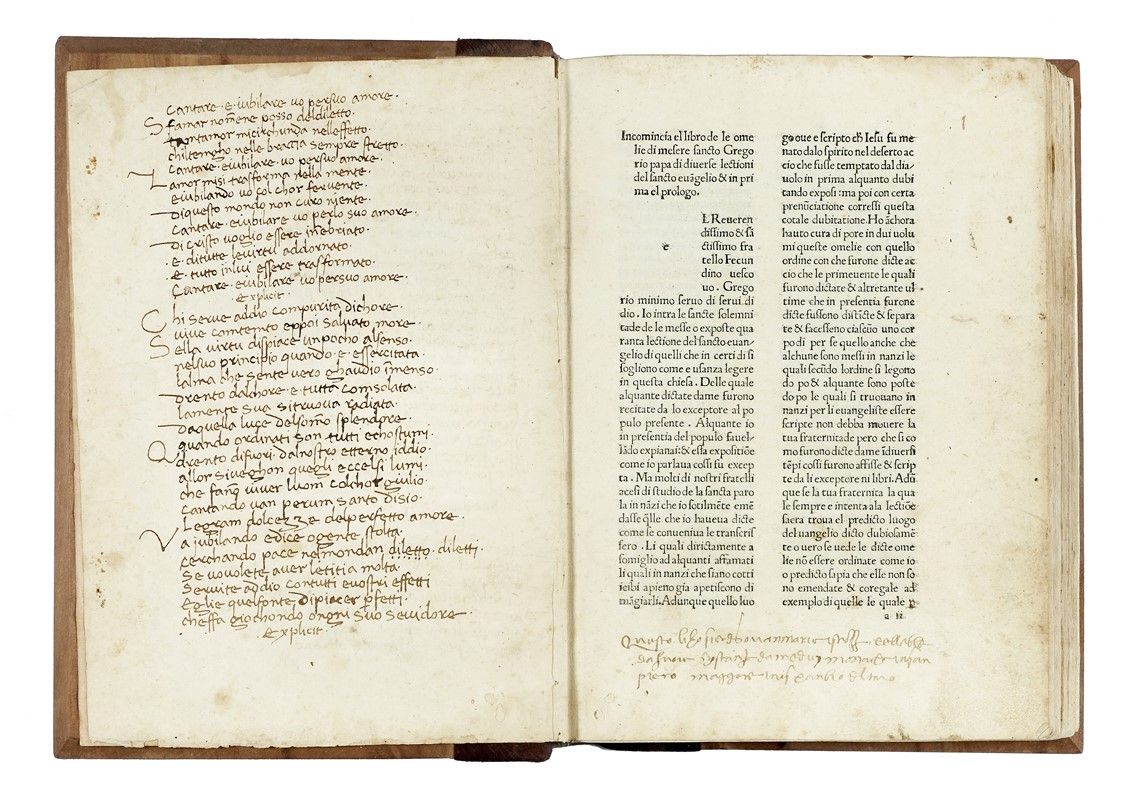 Cantare · e · iubilare vo persuo amore ·
Sfamar nomene posso deldiletto ·
tantamor micirchunda nelleffetto ·
chiltengho nelle braccia sempre stretto ·
Cantare · eiubilare · vo persuo amore ·
Lamor misi trasforma nella mente ·
eiubilando vo col chor fervente ·
Diquesto mondo non curo niente ·
Cantare · eiubilare vo perlo suo amore ·
Di cristo voglio essere inebriato ·
· E · ditutte levirtu addornato ·
· E · tutto inlui essere trasformato ·
Cantare · eiubilare vo persuo amore ·
Explicit ·
Chi serve addio compurita dichore ·
vive comtento eppoi salvato more ·
Sella virtu dispiace unpocho alsenso ·
nelsuo principio quando · e · essercitata ·
lalma che sente vero ghaudio īmenso ·
Drento dalchore · e tutta comsolata ·
lamente sua sitruova radiata ·
Daquella luce delsom̄o splendore ·
Quando ordinati son tutti echostumi ·
drento difuori · dalnostro etterno iddio ·
allor siveghon quegli eccelsi lumi ·
che fanno viver luom colchor giulio ·
Cantando van perum santo disio ·
Legram dolcezze delperfetto amore ·
Va iubilando edice ogente stolta ·
cerchando pace nelmondan diletto · diletti ·
Se vovolete aver letitia molta ·
Servite addio contutti evostri effetti
Eglie quelfonte dipiacer p̄fetti ·
cheffa giochondo ongni suo servidore
Explicit ·
Incomincia el libro de le ome
lie di mesere sancto Grego
rio papa di diuerse lectioni
del sancto euāgelio & in pri
ma el prologo.
e
L Reueren
dissimo & sā
ctissimo fra
tello Fecun
dino uesco
uo. Grego
rio minimo seruo di serui di
dio. Io intra le sancte solemni
tade de le messe o exposte qua
ranta lectione del sancto euan-
gelio di quelli che in certi di si
sogliono come e usanza legere
in questa chiesa. Delle quale
alquante dictate dame furono
recitate da lo exceptore al po
pulo presente. Alquante io
in presentia del populo fauel-
lādo expianai: & essa expositiōe
come io parlaua cossi fu excep
ta. Ma molti di nostri fratelli
acesi di studio de la sancta paro
la in nāzi che io sotilmēte emē
dasse q̄lle che io haueua dicte
come se conueniua le transcris
sero. Li quali dirictamente a
somiglio ad alquanti affamati
li quali in nanzi che siano cotti
icibi apieno gia apetiscono di
māgiarli. Adunque quello luo
go oue e scripto ch̄ Iesu fu me
nato dalo spirito nel deserto ac
cio che fusse temptato dal dia-
uolo in prima alquanto dubi
tando exposi: ma poi con certa
prenūciatione corressi questa
cotale dubitatione. Ho āchora
hauto cura di pore in dui uolu
mi queste omelie con quello
ordine con che furone dicte ac
cio che le primeuente le quali
furono dictate & altretante ul
time che in presentia furone
dicte fussono distīcte & separa
te & facesseno ciascūo uno cor
po di per se quello anche chè
alchune sono messi in nanzi le
quali secūdo lordine si legono
do po & alquante sono poste
do po le quali si truouano in
nanzi per li euangeliste essere
scripte non debba mouere la
tua fraternitade pero che si co
mo furono dicte dame īdiuersi
tēpi cossi furono affisse & scrip
te da li exceptore ni libri. Adū
que se la tua fraternita la qua
le sempre e intenta ale lectiōe
saera troua el predicto luogo
del uangelio dicto dubiosamē-
te o uero se uede le dicte ome
lie nō essere ordinate come io
o predicto sapia che elle non so
no emendate & coregale ad
exemplo di quelle le quale p
a ii
Questo libro
piero maggore